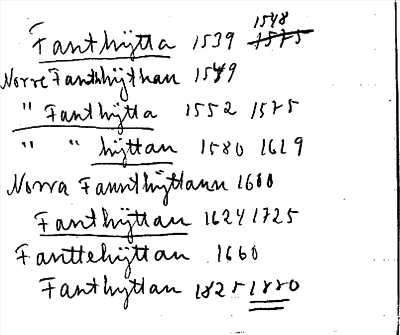 1548
Fanthÿtta 1539 1575
Norre Fanthhÿthan 1549
" Fanthÿtta 1552 1575
" " hÿttan 1580 1619
Norra Fannthÿttann 1600
Fanthÿttan 1624 1725
Fanttehÿttan 1660
Fanthyttan 1825 1880